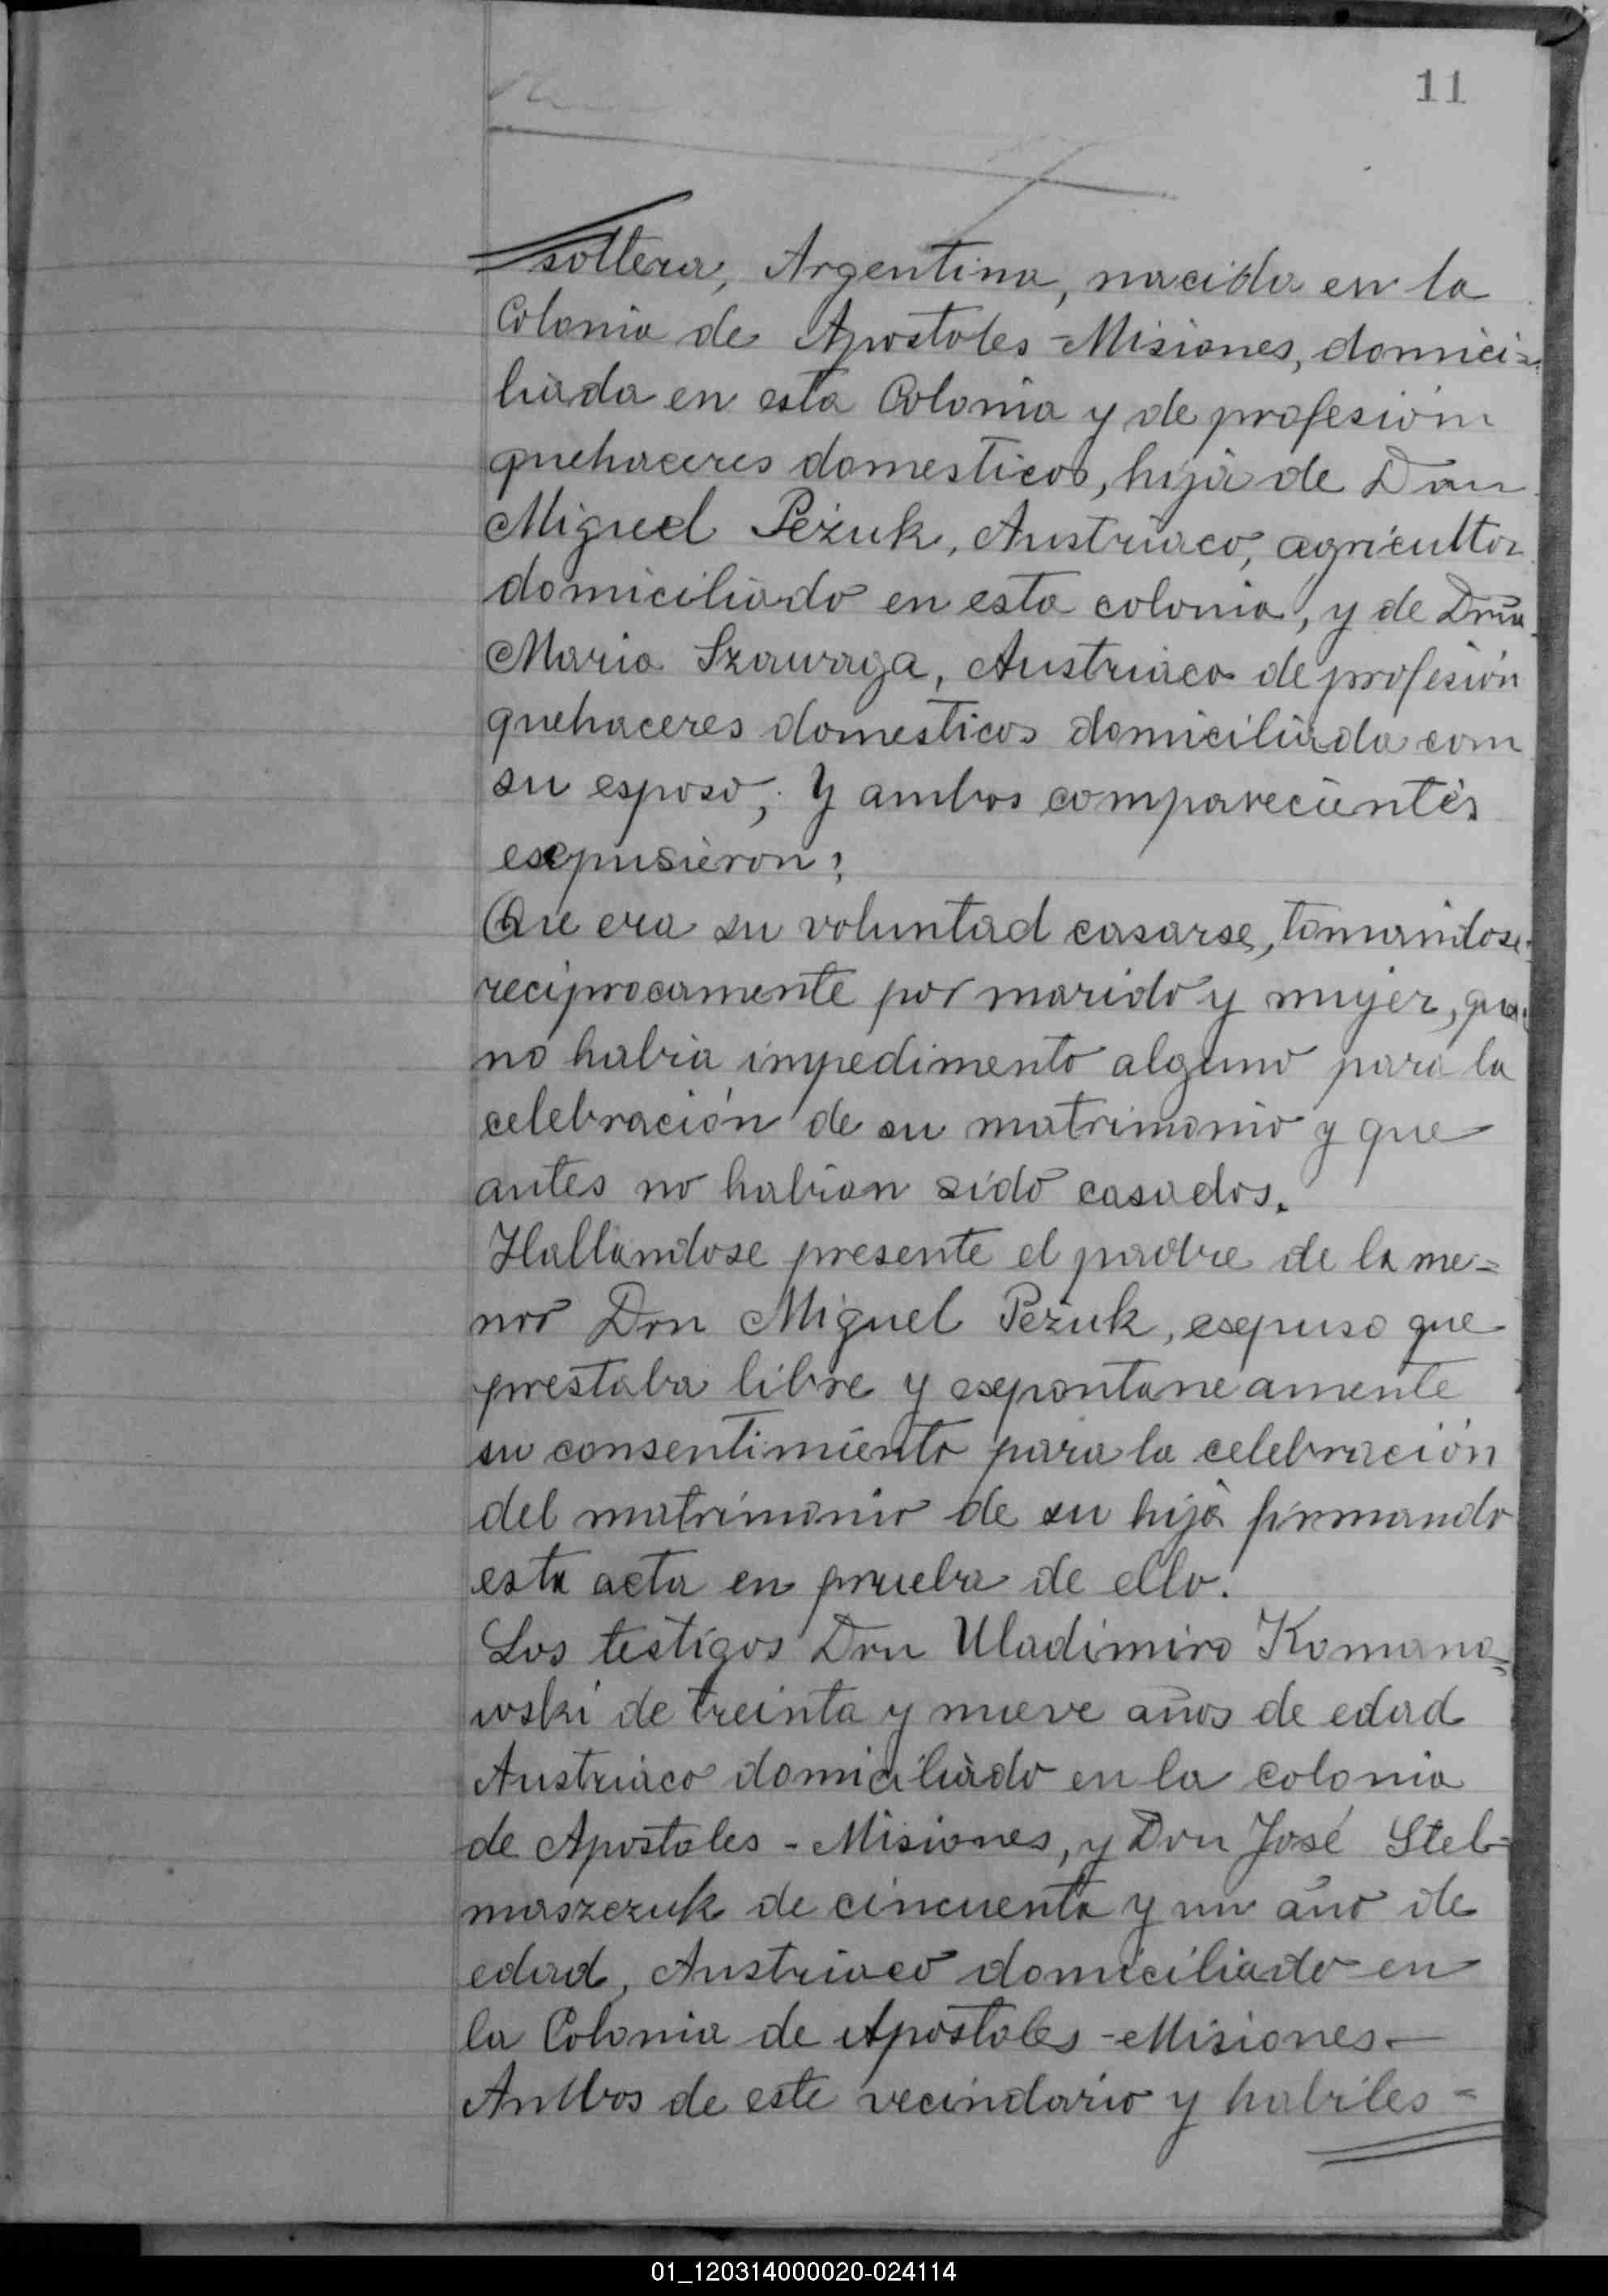 11
soltera, Argentina, nacida en la
Colonia de Apostoles - Misiones, domici=
liada en esta Colonia y de profesión
quehaceres domesticos, hija de Don
Miguel Peżuk, Austriaco, agricultor
domiciliado en esta colonia, y de Dña
Maria Szawaga, Austriaca de profesión
quehaceres domesticos domiciliada con
su esposo; Y ambos comparecientes
esepusieron:
Que era su voluntad casarse, tomandose
reciprocamente por marido y mujer, que
no habia impedimento alguno para la
celebración de su matrimonio y que
antes no habian sido casados.
Hallandose presente el padre de la me=
nor Don Miguel Peżuk, esepuso que
prestaba libre y esepontaneamente
su consentimiento para la celebración
del matrimonio de su hija firmando
esta acta en prueba de ello.
Los testigos Don Uladimiro Komano=
wski de treinta y nueve años de edad
Austriaco domiciliado en la colonia
de Apostoles - Misiones, y Don José Stel=
maszczuk de cincuenta y un año de
edad, Austriaco domiciliado en
la Colonia de Apostoles - Misiones.—
Ambos de este vecindario y habiles =
01_120314000020-024114